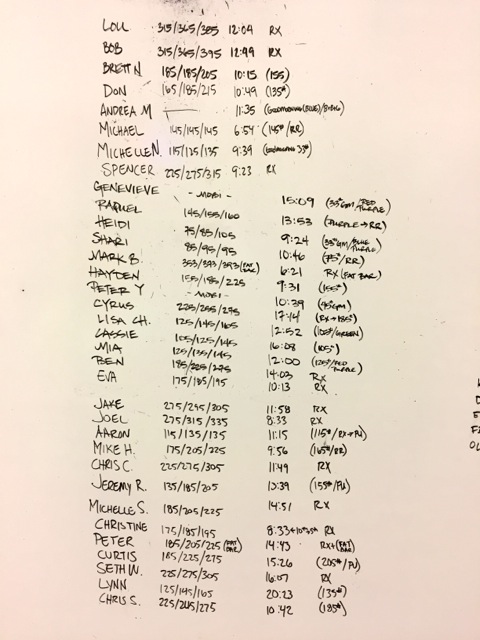 LOU 315/365/385 12:04 RX
BOB 315/365/395 12:49 RX
BRETT N 185/185/205 10:15 (155)
DON 165/185/215 10:49 (135#)
ANDREA M — 11:35
MICHAEL 145/145/145 6:54 (145#/RR)
MICHELLE N. 115/125/135 9:39
SPENCER 225/275/315 9:23 RX
GENEVIEVE - MOBI - 15:09 (33#GM/RED PURPLE)
RAQUEL 145/155/160 13:53 (PURPLE→RR)
HEIDI 75/85/105 9:24 (33#GM/BLUE PURPLE)
SHARI 85/95/95 10:46 (75#/RR)
MARK B. 353/393/393 (FAT BAR) 6:21 RX (FAT BAR)
HAYDEN 155/185/225 9:31 (155#)
PETER Y - MOBI - 10:39 (95#GM)
CYRUS 225/255/275 17:14 (RX→185#)
LISA CH. 125/145/165 12:52 (105#/GREEN)
CASSIE 105/125/145 16:08 (105#)
MIA 125/135/145 12:00 (125#/RED PURPLE)
BEN 185/225/275 14:03 RX
EVA 175/185/195 10:13 RX
JAKE 275/295/305 11:58 RX
JOEL 275/315/335 8:33 RX
AARON 115/135/135 11:15 (115#/RX→PU)
MIKE H. 175/205/225 9:56 (165#/RR)
CHRIS C. 225/275/305 11:49 RX
JEREMY R. 135/185/205 10:39 (155#/PU)
MICHELLE S. 185/205/225 14:51 RX
CHRISTINE 175/185/195 8:33 RX
PETER 185/205/225 (FAT BAR) 14:43 RX+(FAT BAR)
CURTIS 185/225/275 15:26 (205#/PU)
SETH W. 225/275/305 16:07 RX
LYNN 125/145/165 20:23 (135#)
CHRIS S. 225/245/275 10:42 (185#)